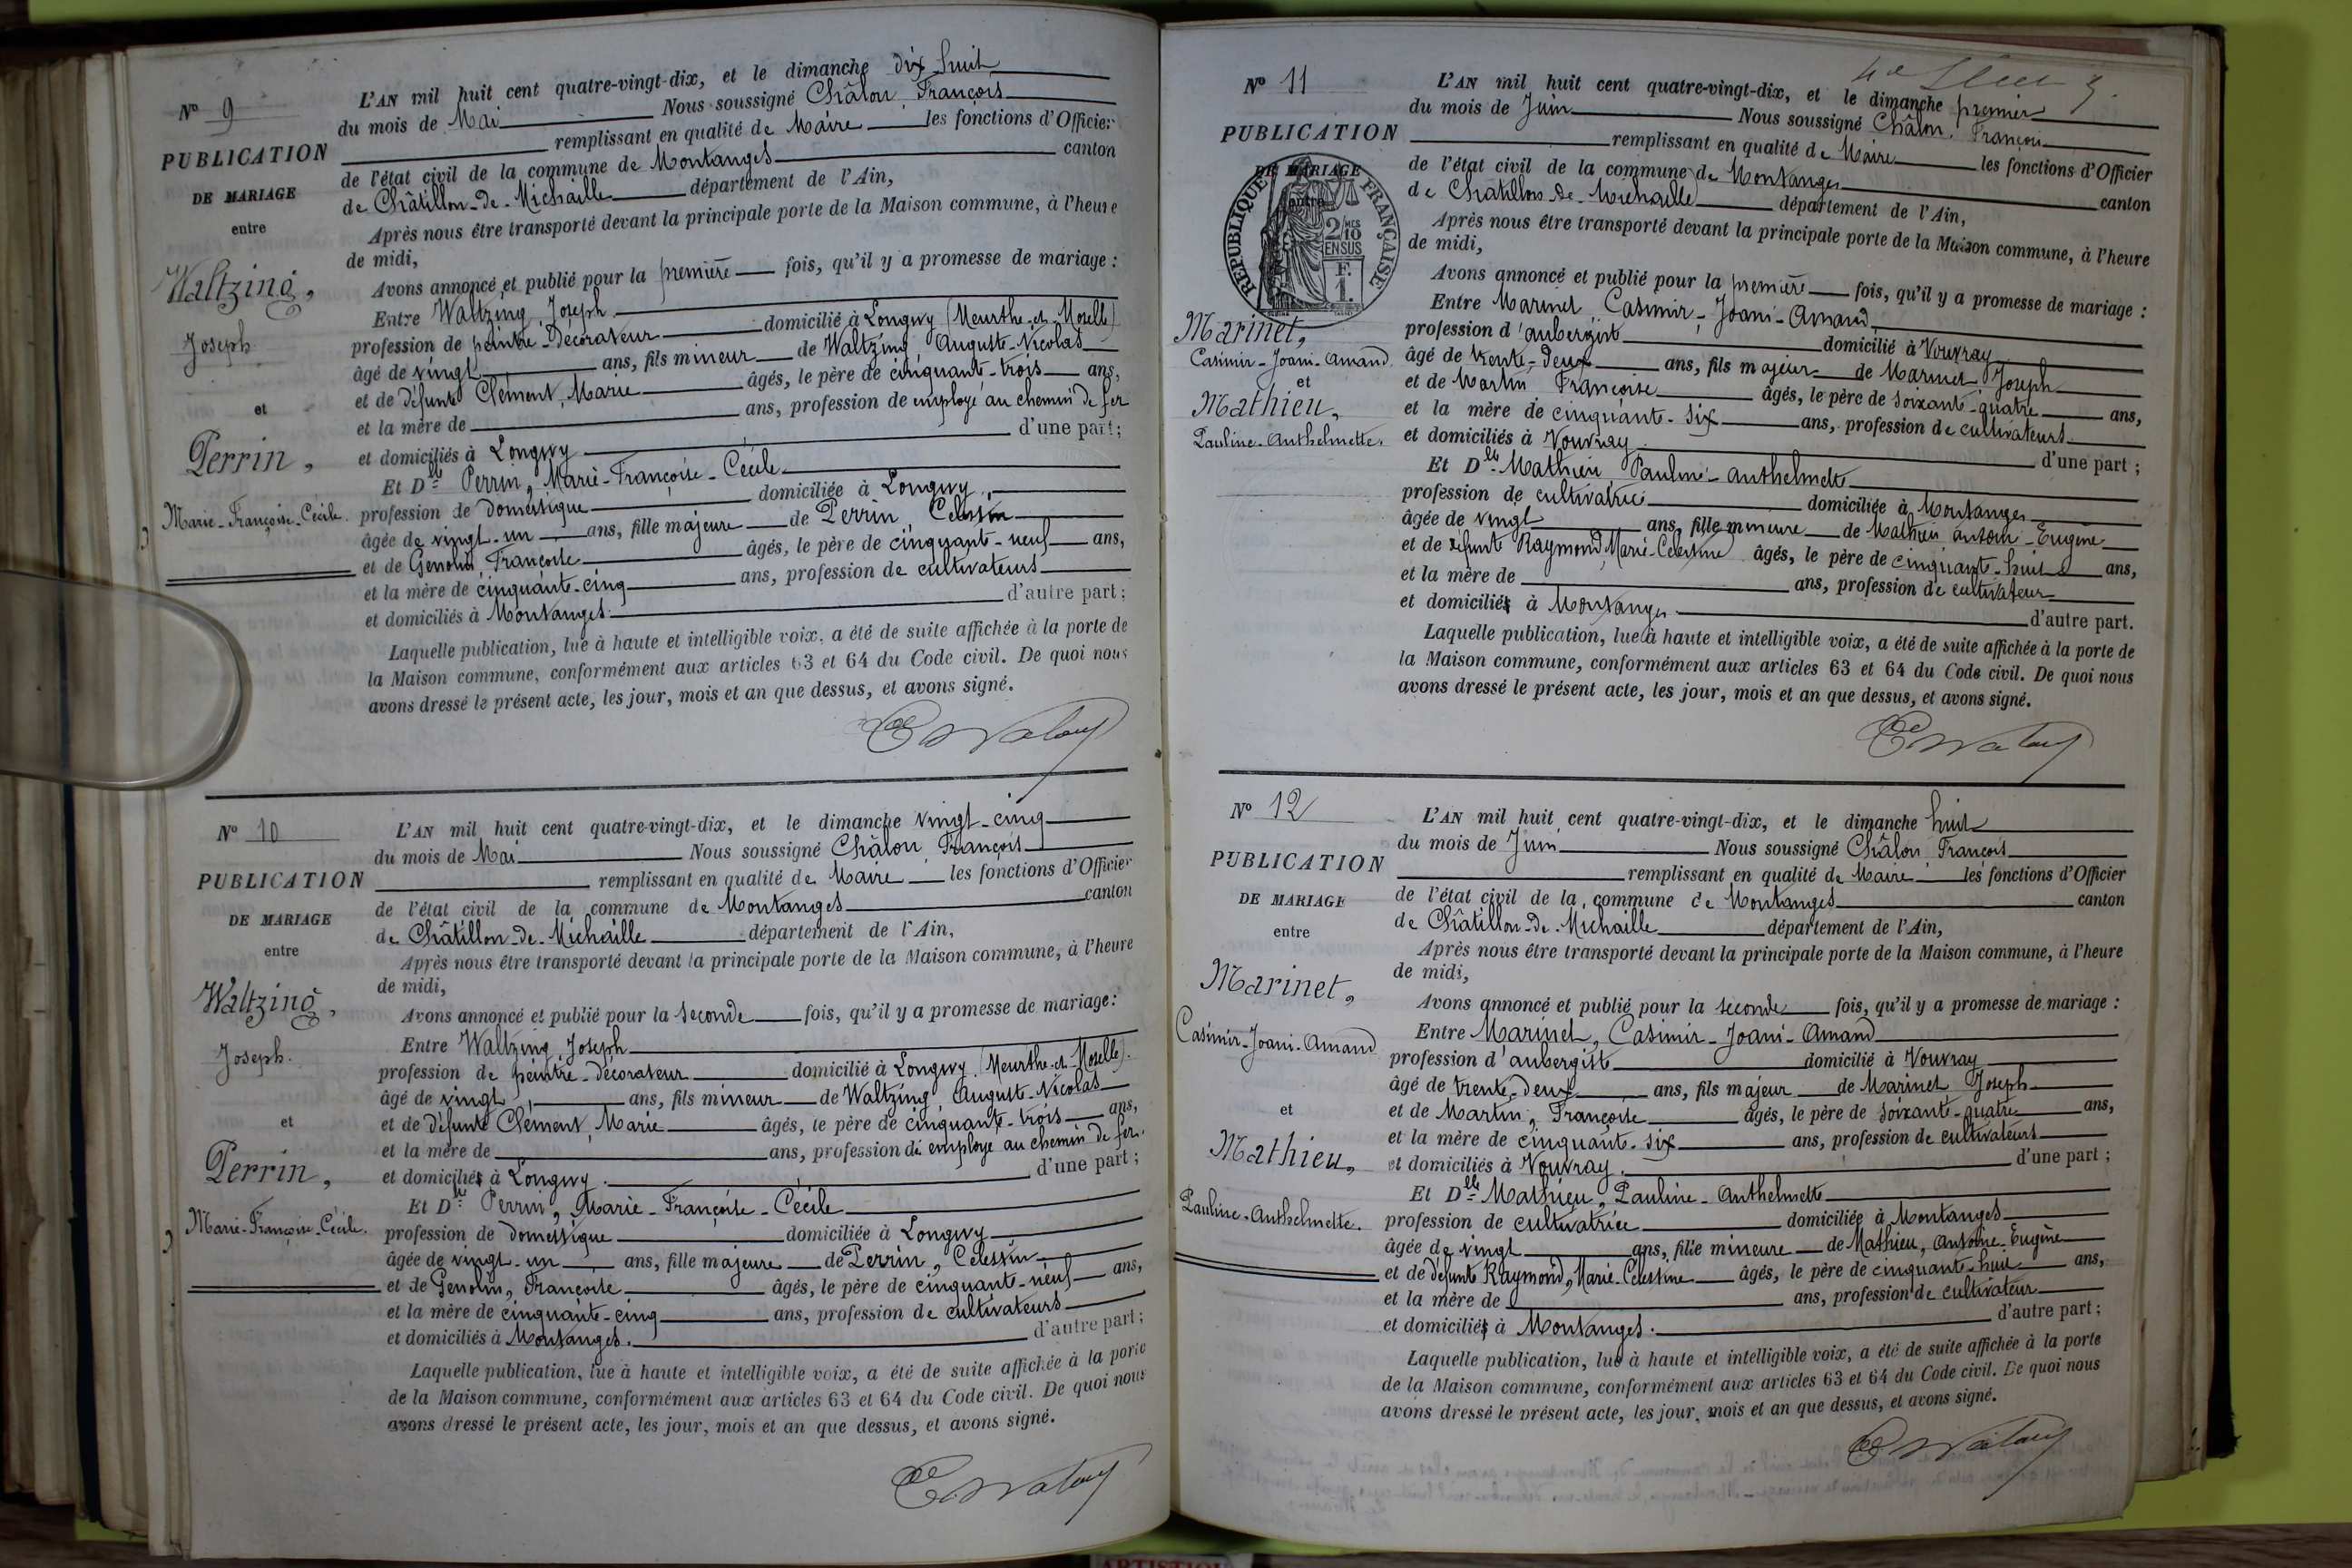 Nº 9
PUBLICATION
DE MARIAGE
entre
Waltzing,
Joseph.
et
Perrin,
Marie-Françoise-Cécile.
L'AN mil huit cent quatre-vingt-dix, et le dimanche dix huit
du mois de Mai Nous soussigné Châlon, François
remplissant en qualité de Maire les fonctions d'Officier
de l'état civil de la commune de Montanges canton
de Châtillon-de-Michaille département de l'Ain,
Après nous être transporté devant la principale porte de la Maison commune, à l'heure
de midi,
Avons annoncé et publié pour la première fois, qu'il y a promesse de mariage :
Entre Waltzing, Joseph
profession de peintre-Décorateur domicilié à Longwy (Meurthe-et-Moselle)
âgé de vingt ans, fils mineur de Waltzing, Auguste-Nicolas
et de défunte Clément, Marie âgés, le père de cinquante-trois ans,
et la mère de ans, profession de employé au chemin de fer
et domiciliés à Longwy d'une part;
Et Dlle Perrin, Marie-Françoise-Cécile
profession de domestique domiciliée à Longwy,
âgée de vingt-un ans, fille majeure de Perrin, Célestin
et de Genolin, Françoise âgés, le père de cinquante-neuf ans,
et la mère de cinquante-cinq ans, profession de cultivateurs
et domiciliés à Montanges. d'autre part;
Laquelle publication, lue à haute et intelligible voix, a été de suite affichée à la porte de
la Maison commune, conformément aux articles 63 et 64 du Code civil. De quoi nous
avons dressé le présent acte, les jour, mois et an que dessus, et avons signé.
Nº 10
PUBLICATION
DE MARIAGE
entre
Waltzing,
Joseph.
et
Perrin,
Marie-Françoise-Cécile.
L'AN mil huit cent quatre-vingt-dix, et le dimanche vingt-cinq
du mois de Mai Nous soussigné Châlon, François
remplissant en qualité de Maire les fonctions d'Officier
de l'état civil de la commune de Montanges canton
de Châtillon-de-Michaille département de l'Ain,
Après nous être transporté devant la principale porte de la Maison commune, à l'heure
de midi,
Avons annoncé et publié pour la seconde fois, qu'il y a promesse de mariage:
Entre Waltzing, Joseph
profession de peintre-décorateur domicilié à Longwy (Meurthe-et-Moselle).
âgé de vingt ans, fils mineur de Waltzing, Auguste-Nicolas
et de défunte Clément, Marie âgés, le père de cinquante-trois ans,
et la mère de ans, profession de employé au chemin de fer.
et domiciliés à Longwy. d'une part;
Et Dlle Perrin, Marie-Françoise-Cécile
profession de domestique domiciliée à Longwy
âgée de vingt-un ans, fille majeure de Perrin, Célestin
et de Genolin, Françoise âgés, le père de cinquante-neuf ans,
et la mère de cinquante-cinq ans, profession de cultivateurs
et domiciliés à Montanges. d'autre part;
Laquelle publication, lue à haute et intelligible voix, a été de suite affichée à la porte
de la Maison commune, conformément aux articles 63 et 64 du Code civil. De quoi nous
avons dressé le présent acte, les jour, mois et an que dessus, et avons signé.
Nº 11
PUBLICATION
DE MARIAGE
entre
RÉPUBLIQUE FRANÇAISE
2/10 MES
EN SUS
F.
1.
Marinet,
Casimir-Joani-Amand
et
Mathieu,
Pauline-Anthelmette.
L'AN mil huit cent quatre-vingt-dix, et le dimanche premier
du mois de Juin Nous soussigné Châlon, François
remplissant en qualité de Maire les fonctions d'Officier
de l'état civil de la commune de Montanges canton
de Châtillon-de-Michaille département de l'Ain,
Après nous être transporté devant la principale porte de la Maison commune, à l'heure
de midi,
Avons annoncé et publié pour la première fois, qu'il y a promesse de mariage :
Entre Marinet, Casimir-Joani-Amand
profession d'aubergiste domicilié à Vouvray
âgé de trente-deux ans, fils majeur de Marinet, Joseph
et de Martin, Françoise âgés, le père de soixante-quatre ans,
et la mère de cinquante-six ans, profession de cultivateurs
et domiciliés à Vouvray d'une part;
Et Dlle Mathieu, Pauline-Anthelmette
profession de cultivatrice domiciliée à Montanges
âgée de vingt ans, fille mineure de Mathieu Antoine-Eugène
et de défunte Raymond, Marie-Célestine âgés, le père de cinquante-huit ans,
et la mère de ans, profession de cultivateur
et domiciliés à Montanges d'autre part.
Laquelle publication, lue à haute et intelligible voix, a été de suite affichée à la porte de
la Maison commune, conformément aux articles 63 et 64 du Code civil. De quoi nous
avons dressé le présent acte, les jour, mois et an que dessus, et avons signé.
Nº 12
PUBLICATION
DE MARIAGE
entre
Marinet,
Casimir-Joani-Amand
et
Mathieu,
Pauline-Anthelmette.
L'AN mil huit cent quatre-vingt-dix, et le dimanche huit
du mois de Juin Nous soussigné Châlon, François
remplissant en qualité de Maire les fonctions d'Officier
de l'état civil de la commune de Montanges canton
de Châtillon-de-Michaille département de l'Ain,
Après nous être transporté devant la principale porte de la Maison commune, à l'heure
de midi,
Avons annoncé et publié pour la seconde fois, qu'il y a promesse de mariage :
Entre Marinet, Casimir-Joani-Amand
profession d'aubergiste domicilié à Vouvray
âgé de trente-deux ans, fils majeur de Marinet Joseph
et de Martin, Françoise âgés, le père de soixante-quatre ans,
et la mère de cinquante-six ans, profession de cultivateurs
et domiciliés à Vouvray. d'une part;
Et Dlle Mathieu, Pauline-Anthelmette
profession de cultivatrice domiciliée à Montanges
âgée de vingt ans, fille mineure de Mathieu, Antoine-Eugène
et de défunte Raymond, Marie-Célestine âgés, le père de cinquante-huit ans,
et la mère de ans, profession de cultivateur
et domiciliés à Montanges. d'autre part;
Laquelle publication, lue à haute et intelligible voix, a été de suite affichée à la porte
de la Maison commune, conformément aux articles 63 et 64 du Code civil. De quoi nous
avons dressé le présent acte, les jour, mois et an que dessus, et avons signé.